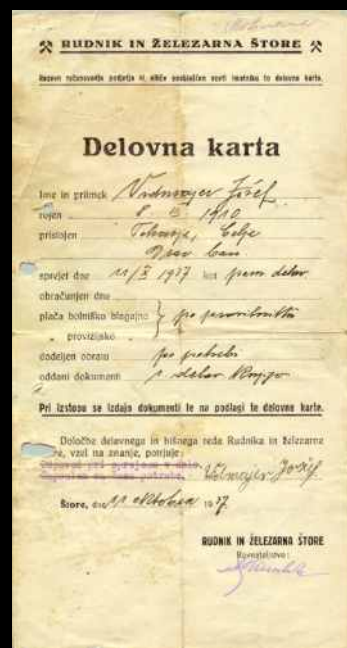 RUDNIK IN ŽELEZARNA ŠTORE
Delovna karta
Ime in priimek Jožef
rojen 8 1910
pristojen Teharje, Celje
Drav. ban.
sprejet dne 11/X 1937 kot pom. delav.
obračunjen dne
plača bolniško blagajno } po pravilniku
provizijsko
dodeljen obratu po potrebi
oddani dokumenti 1 delav. knjigo
Pri izstopu se izdajo dokumenti le na podlagi te delovne karte.
Določbe delovnega in hišnega reda Rudnika in železarne
vzel na znanje, potrjuje:
Jožef
Štore, dne 11 oktobra 1937
RUDNIK IN ŽELEZARNA ŠTORE
Ravnateljstvo: